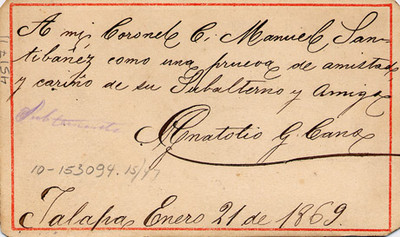 A mi Coronel C. Manuel San-
tibañez como una prueva de amistad
y cariño de su Subalterno y Amigo
Anatolio G. Cano
10-153094.15/77
Jalapa Enero 21 de 1869.